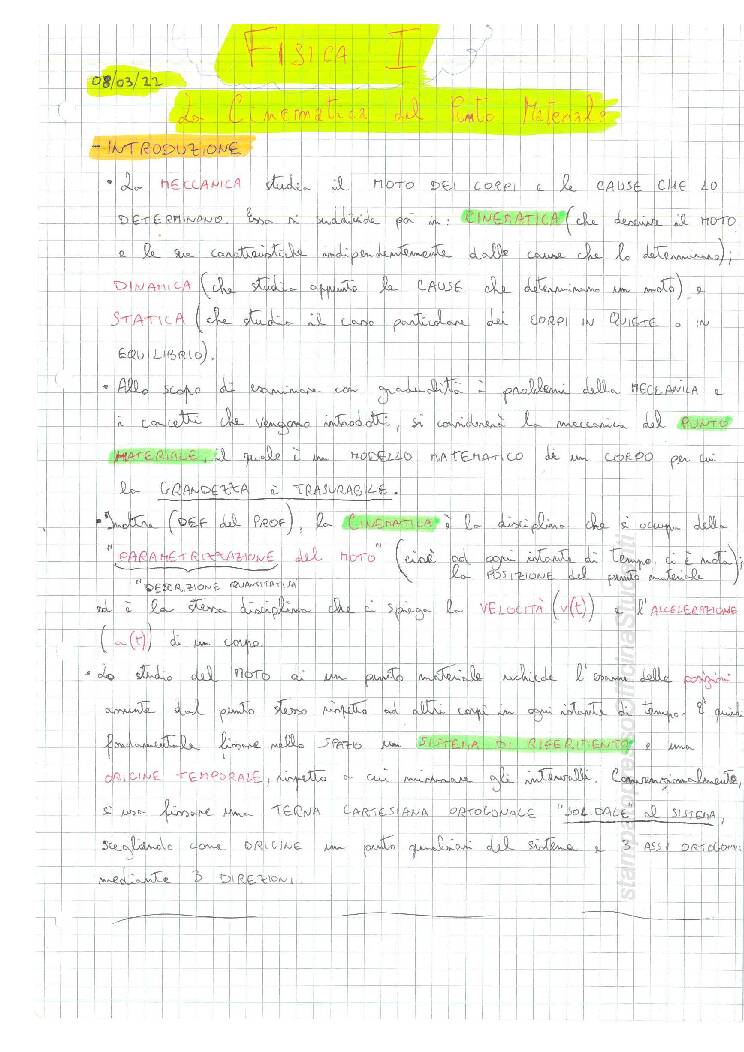 FISICA I
08/03/22
La Cinematica del Punto Materiale
- INTRODUZIONE
• La MECCANICA studia il MOTO DEI CORPI e le CAUSE CHE LO
DETERMINANO. Essa si suddivide poi in: CINEMATICA (che descrive il MOTO
e le sue caratteristiche indipendentemente dalle cause che lo determinano);
DINAMICA (che studia appunto le CAUSE che determinano un moto) e
STATICA (che studia il caso particolare dei CORPI IN QUIETE o IN
EQUILIBRIO).
• Allo scopo di esaminare con gradualità i problemi della MECCANICA e
i concetti che vengono introdotti, si considererà la meccanica del PUNTO
MATERIALE, il quale è un MODELLO MATEMATICO di un CORPO per cui
la GRANDEZZA è TRASCURABILE.
• Inoltre (DEF del PROF), la CINEMATICA è la disciplina che si occupa della
"PARAMETRIZZAZIONE del MOTO" (cioè ad ogni istante di tempo ci è nota);
la POSIZIONE del punto materiale
"DESCRIZIONE QUANTITATIVA
ed è la stessa disciplina che ci spiega la VELOCITÀ (v(t)) e l'ACCELERAZIONE
(a(t)) di un corpo.
• Lo studio del MOTO di un punto materiale richiede l'esame delle posizioni
assunte dal punto stesso rispetto ad altri corpi in ogni istante di tempo. È quindi
fondamentale fissare nello SPAZIO un SISTEMA DI RIFERIMENTO e una
ORIGINE TEMPORALE, rispetto a cui misurare gli intervalli. Convenzionalmente,
si usa fissare una TERNA CARTESIANA ORTOGONALE "SOLIDALE" al SISTEMA,
scegliendo come ORIGINE un punto qualsiasi del sistema e 3 ASSI ORTOGONALI
mediante 3 DIREZIONI.